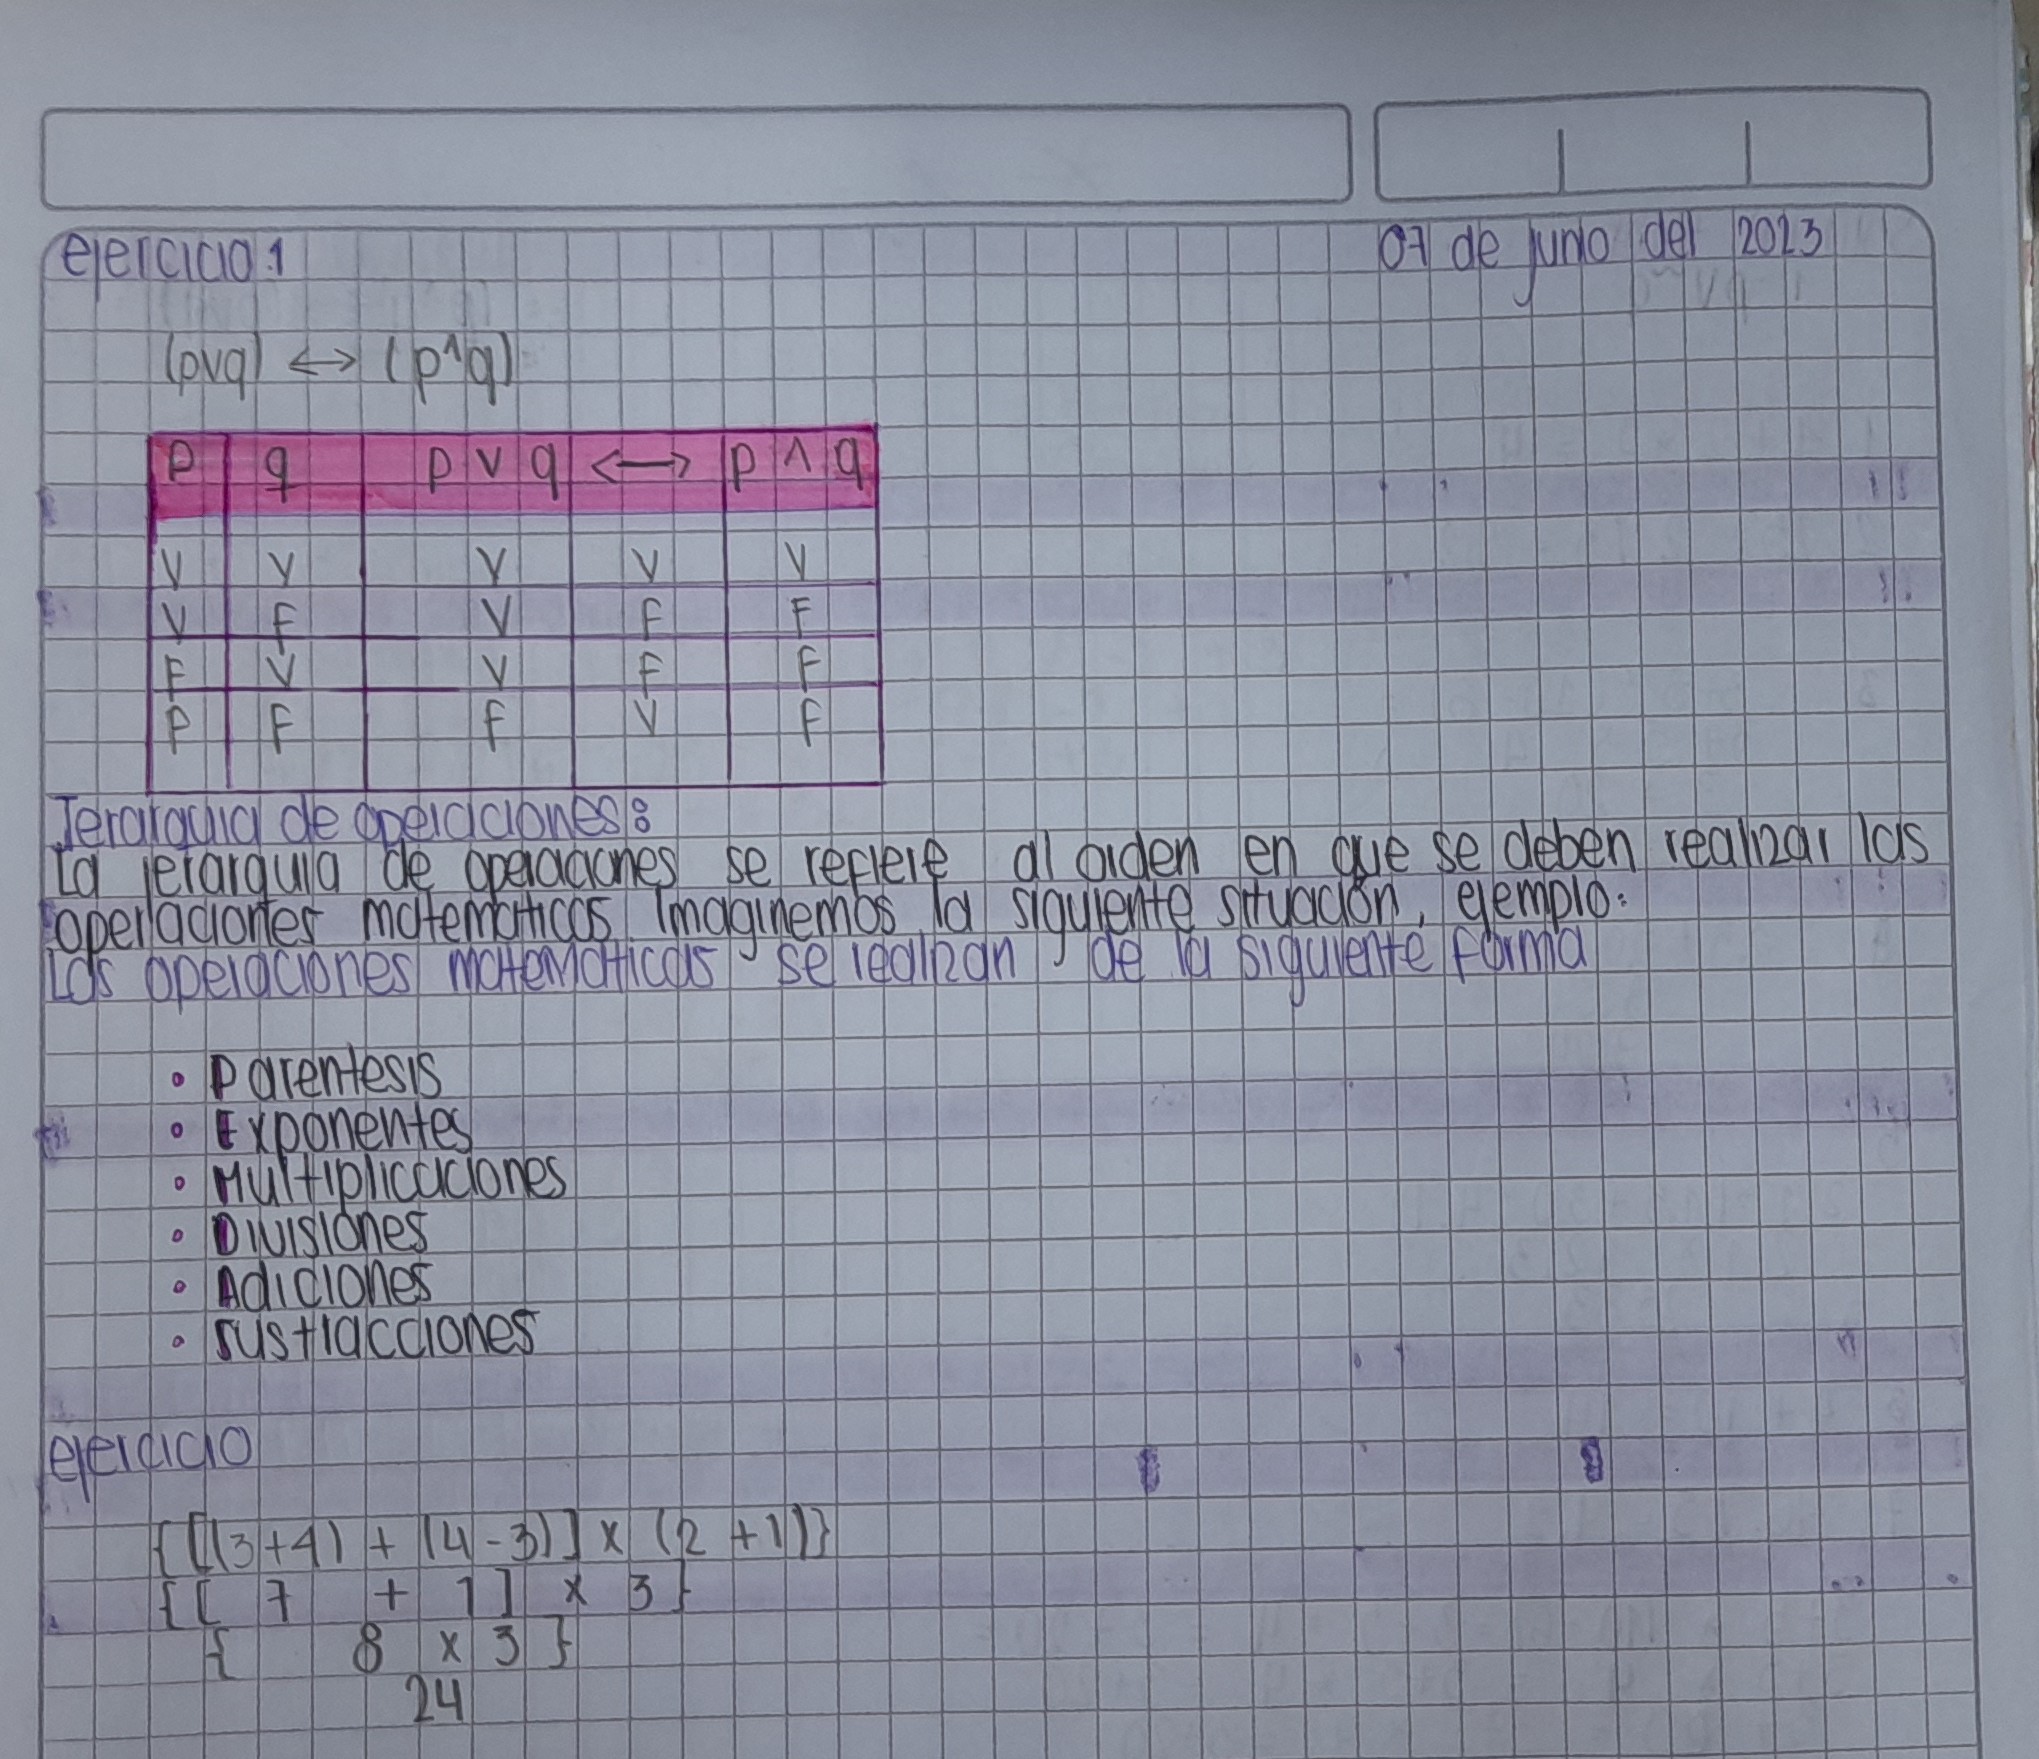 ejercicio 1 07 de junio del 2023
(pvq) ↔ (p^q)
P q p v q ↔ p ^ q
V V V V V
V F V F F
F V V F F
P F F V F
Jerarquia de operaciones:
La jerarquia de operaciones se refiere al orden en que se deben realizar las
operaciones matematicas. Imaginemos la siguiente situación, ejemplo:
Las operaciones matematicas se realizan de la siguiente forma
• Parentesis
• Exponentes
• Multiplicaciones
• Divisiones
• Adiciones
• Sustracciones
ejercicio
{[(3+4) + (4-3)] x (2 +1)}
{[ 7 + 1] x 3}
{ 8 x 3 }
24